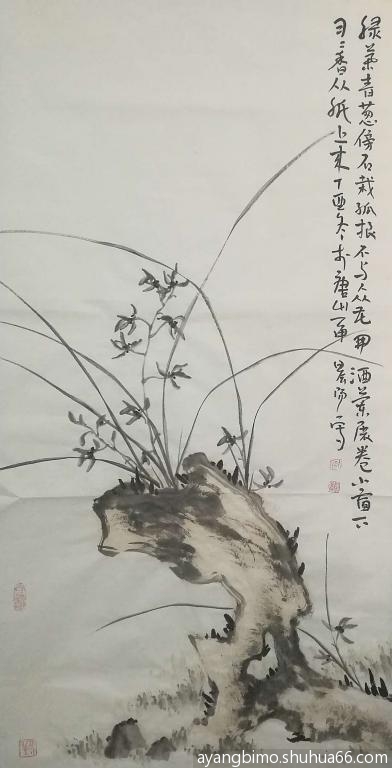 绿葉青葱傍石栽孤根不与众花开酒阑展卷小窗下
习习香从纸上来丁酉冬于唐山
ayangbimo.shuhua66.com